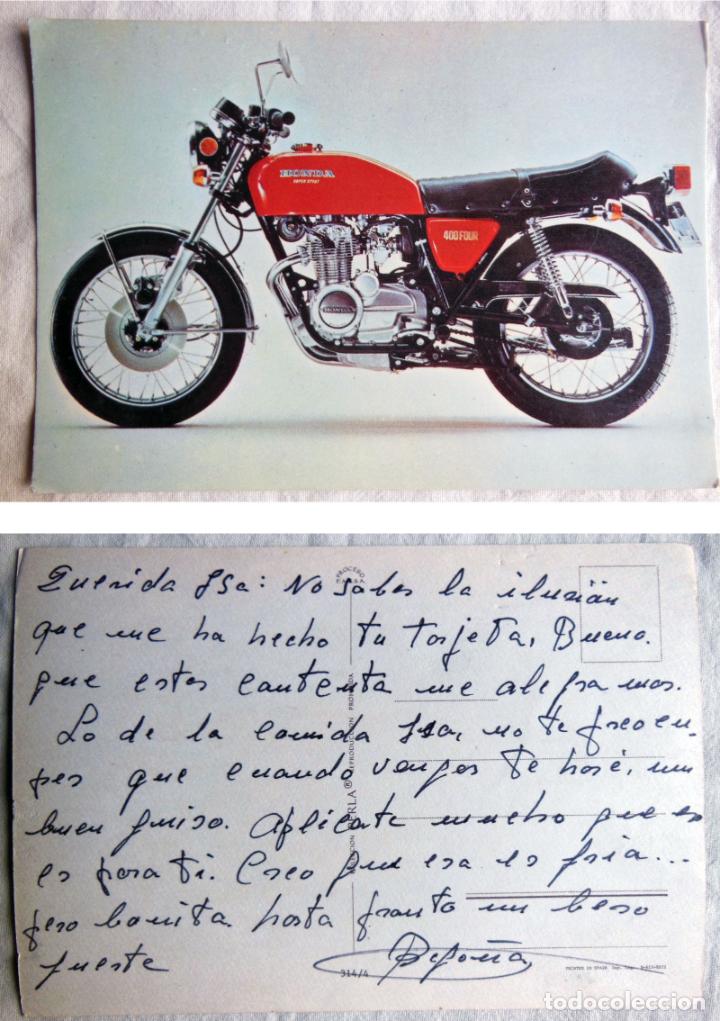 HONDA
SUPER SPORT
400 FOUR
HONDA
Querida Isa: No sabes la ilusión
que me ha hecho tu tarjeta, Bueno.
que estes contenta me alegra mas.
Lo de la comida Isa, no te preocu-
pes que cuando vengas te haré, un
buen guiso. Aplicate mucho que es
es para ti. Creo que esa es fria...
pero bonita hasta pronto un beso
fuerte
REPRODUCCION PROHIBIDA
PERLA®
314/4
PRINTED IN SPAIN
todocoleccion